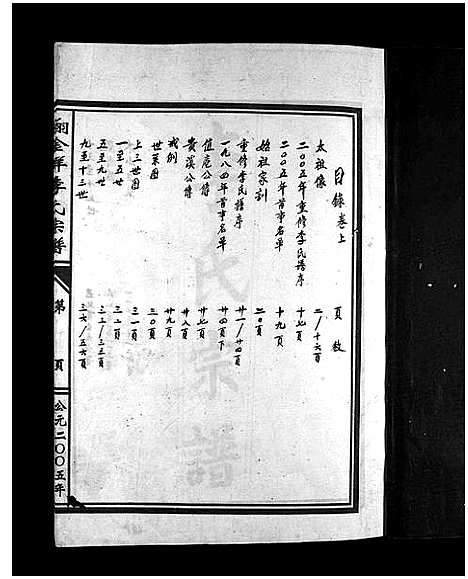 目錄卷上 頁数
太祖像 二/十六頁
二00五年重修李氏譜序 十七頁
二00五年首事名單 十九頁
始祖家訓 二0頁
重修李氏譜序 廿一/廿四頁
一九八四年首事名單 廿四頁下
值庵公傳 廿七頁
貴溪公傳 廿八頁
戒例 廿九頁
世系图 三0頁
上三世图 三一頁
一至五世 三二頁
五至九世 三三/三五頁
九至十三世 三六/五六頁
李氏宗譜
第 頁
公元二00五年
氏宗譜